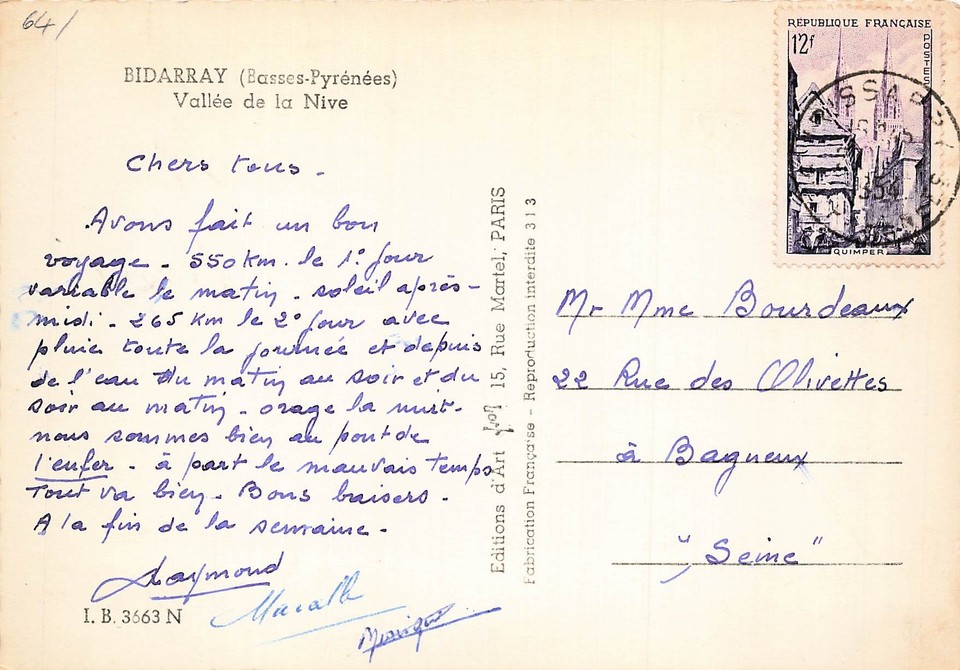 64/
BIDARRAY (Basses-Pyrénées)
Vallée de la Nive
Chers tous.
Avons fait un bon
voyage. 550 km. le 1° jour
variable le matin. soleil après-
midi. 265 km le 2° jour avec
pluie toute la journée et depuis
de l'eau du matin au soir et du
soir au matin. orage la nuit.
nous sommes bien au pont de
l'enfer. à part le mauvais temps
Tout va bien. Bons baisers.
A la fin de la semaine.
Raymond
Monique
I. B. 3663 N
Editions d'Art Yvon 15, Rue Martel, PARIS
Fabrication Française - Reproduction interdite 313
REPUBLIQUE FRANÇAISE
12f
POSTES
QUIMPER
Mr Mme Bourdeaux
22 Rue des Olivettes
à Bagneux
"Seine"